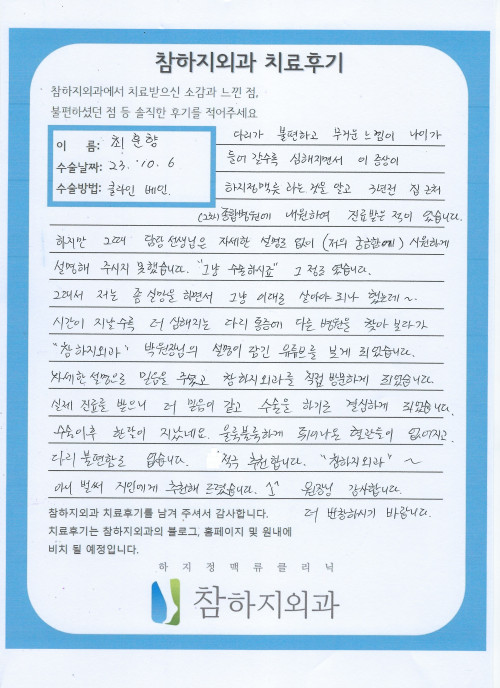 참하지외과 치료후기
참하지외과에서 치료받으신 소감과 느낀 점,
불편하셨던 점 등 솔직한 후기를 적어주세요
이 름: 최춘향
수술날짜: 23. 10. 6
수술방법: 클라인 베인.
다리가 불편하고 무거운 느낌이 나이가
들어 갈수록 심해지면서 이 증상이
하지정맥류 라는 것을 알고 3년전 집 근처
(2차)종합병원에 내원하여 진료받은 적이 있습니다.
하지만 그때 담당 선생님은 자세한 설명도 없이 (저의 궁금함에) 시원하게
설명해 주시지 못했습니다. "그냥 수술하시죠" 그 정도 였습니다.
그래서 저는 좀 실망을 하면서 그냥 이대로 살아야 되나 했는데~
시간이 지날수록 더 심해지는 다리 통증에 다른 병원을 찾아 보다가
"참하지외과" 박원장님의 설명이 담긴 유튜브를 보게 되었습니다.
자세한 설명으로 믿음을 주셨고 참하지외과를 직접 방문하게 되었습니다.
실제 진료를 받으니 더 믿음이 갔고 수술을 하기로 결심하게 되었습니다.
수술이후 한달이 지났네요. 울룩불룩하게 튀어나온 혈관들이 없어지고
다리 불편함도 없습니다. 적극 추천합니다. "참하지외과" ~
아니 벌써 지인에게 추천해 드렸습니다. ^^ 원장님 감사합니다.
더 번창하시기 바랍니다.
참하지외과 치료후기를 남겨 주셔서 감사합니다.
치료후기는 참하지외과의 블로그, 홈페이지 및 원내에
비치 될 예정입니다.
하지정맥류클리닉
참하지외과